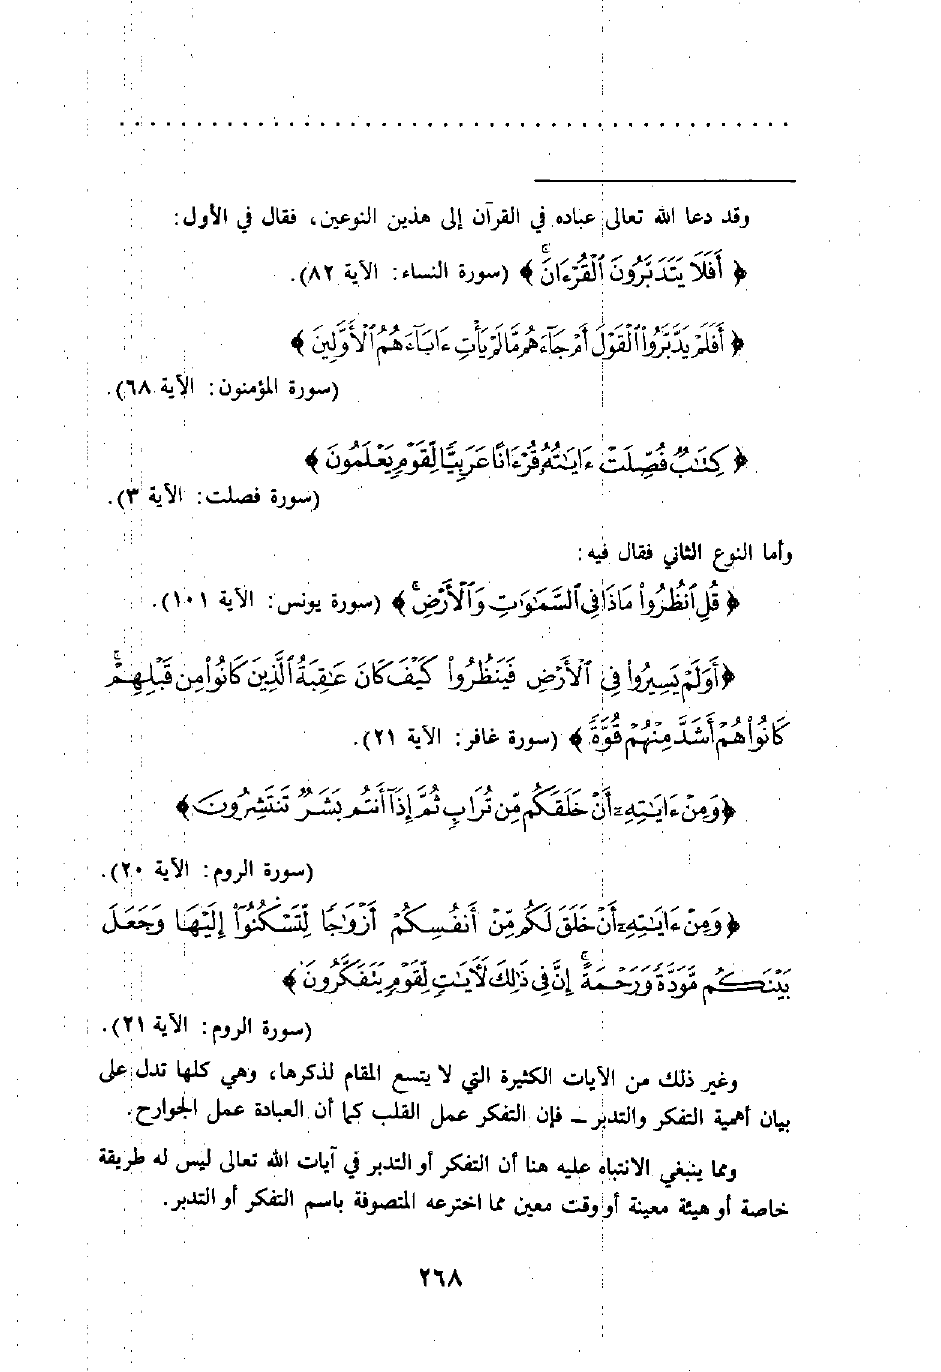 وقد دعا الله تعالى عباده في القرآن إلى هذين النوعين، فقال في الأول:
﴿ أَفَلَا يَتَدَبَّرُونَ ٱلْقُرْءَانَۚ ﴾ (سورة النساء: الآية ٨٢).
﴿ أَفَلَمْ يَدَّبَّرُوا۟ ٱلْقَوْلَ أَمْ جَآءَهُم مَّا لَمْ يَأْتِ ءَابَآءَهُمُ ٱلْأَوَّلِينَ ﴾
(سورة المؤمنون: الآية ٦٨).
﴿ كِتَٰبٌ فُصِّلَتْ ءَايَٰتُهُۥ قُرْءَانًا عَرَبِيًّا لِّقَوْمٍ يَعْلَمُونَ ﴾
(سورة فصلت: الآية ٣).
وأما النوع الثاني فقال فيه:
﴿ قُلِ ٱنظُرُوا۟ مَاذَا فِى ٱلسَّمَٰوَٰتِ وَٱلْأَرْضِۚ ﴾ (سورة يونس: الآية ١٠١).
﴿ أَوَلَمْ يَسِيرُوا۟ فِى ٱلْأَرْضِ فَيَنظُرُوا۟ كَيْفَ كَانَ عَٰقِبَةُ ٱلَّذِينَ كَانُوا۟ مِن قَبْلِهِمْۚ
كَانُوا۟ هُمْ أَشَدَّ مِنْهُمْ قُوَّةً ﴾ (سورة غافر: الآية ٢١).
﴿ وَمِنْ ءَايَٰتِهِۦٓ أَنْ خَلَقَكُم مِّن تُرَابٍ ثُمَّ إِذَآ أَنتُم بَشَرٌ تَنتَشِرُونَ ﴾
(سورة الروم: الآية ٢٠).
﴿ وَمِنْ ءَايَٰتِهِۦٓ أَنْ خَلَقَ لَكُم مِّنْ أَنفُسِكُمْ أَزْوَٰجًا لِّتَسْكُنُوٓا۟ إِلَيْهَا وَجَعَلَ
بَيْنَكُم مَّوَدَّةً وَرَحْمَةًۚ إِنَّ فِى ذَٰلِكَ لَءَايَٰتٍ لِّقَوْمٍ يَتَفَكَّرُونَ ﴾
(سورة الروم: الآية ٢١).
وغير ذلك من الآيات الكثيرة التي لا يتسع المقام لذكرها، وهي كلها تدل على
بيان أهمية التفكر والتدبر ــ فإن التفكر عمل القلب كما أن العبادة عمل الجوارح.
ومما ينبغي الانتباه عليه هنا أن التفكر أو التدبر في آيات الله تعالى ليس له طريقة
خاصة أو هيئة معينة أو وقت معين مما اخترعه المتصوفة باسم التفكر أو التدبر.
٢٦٨